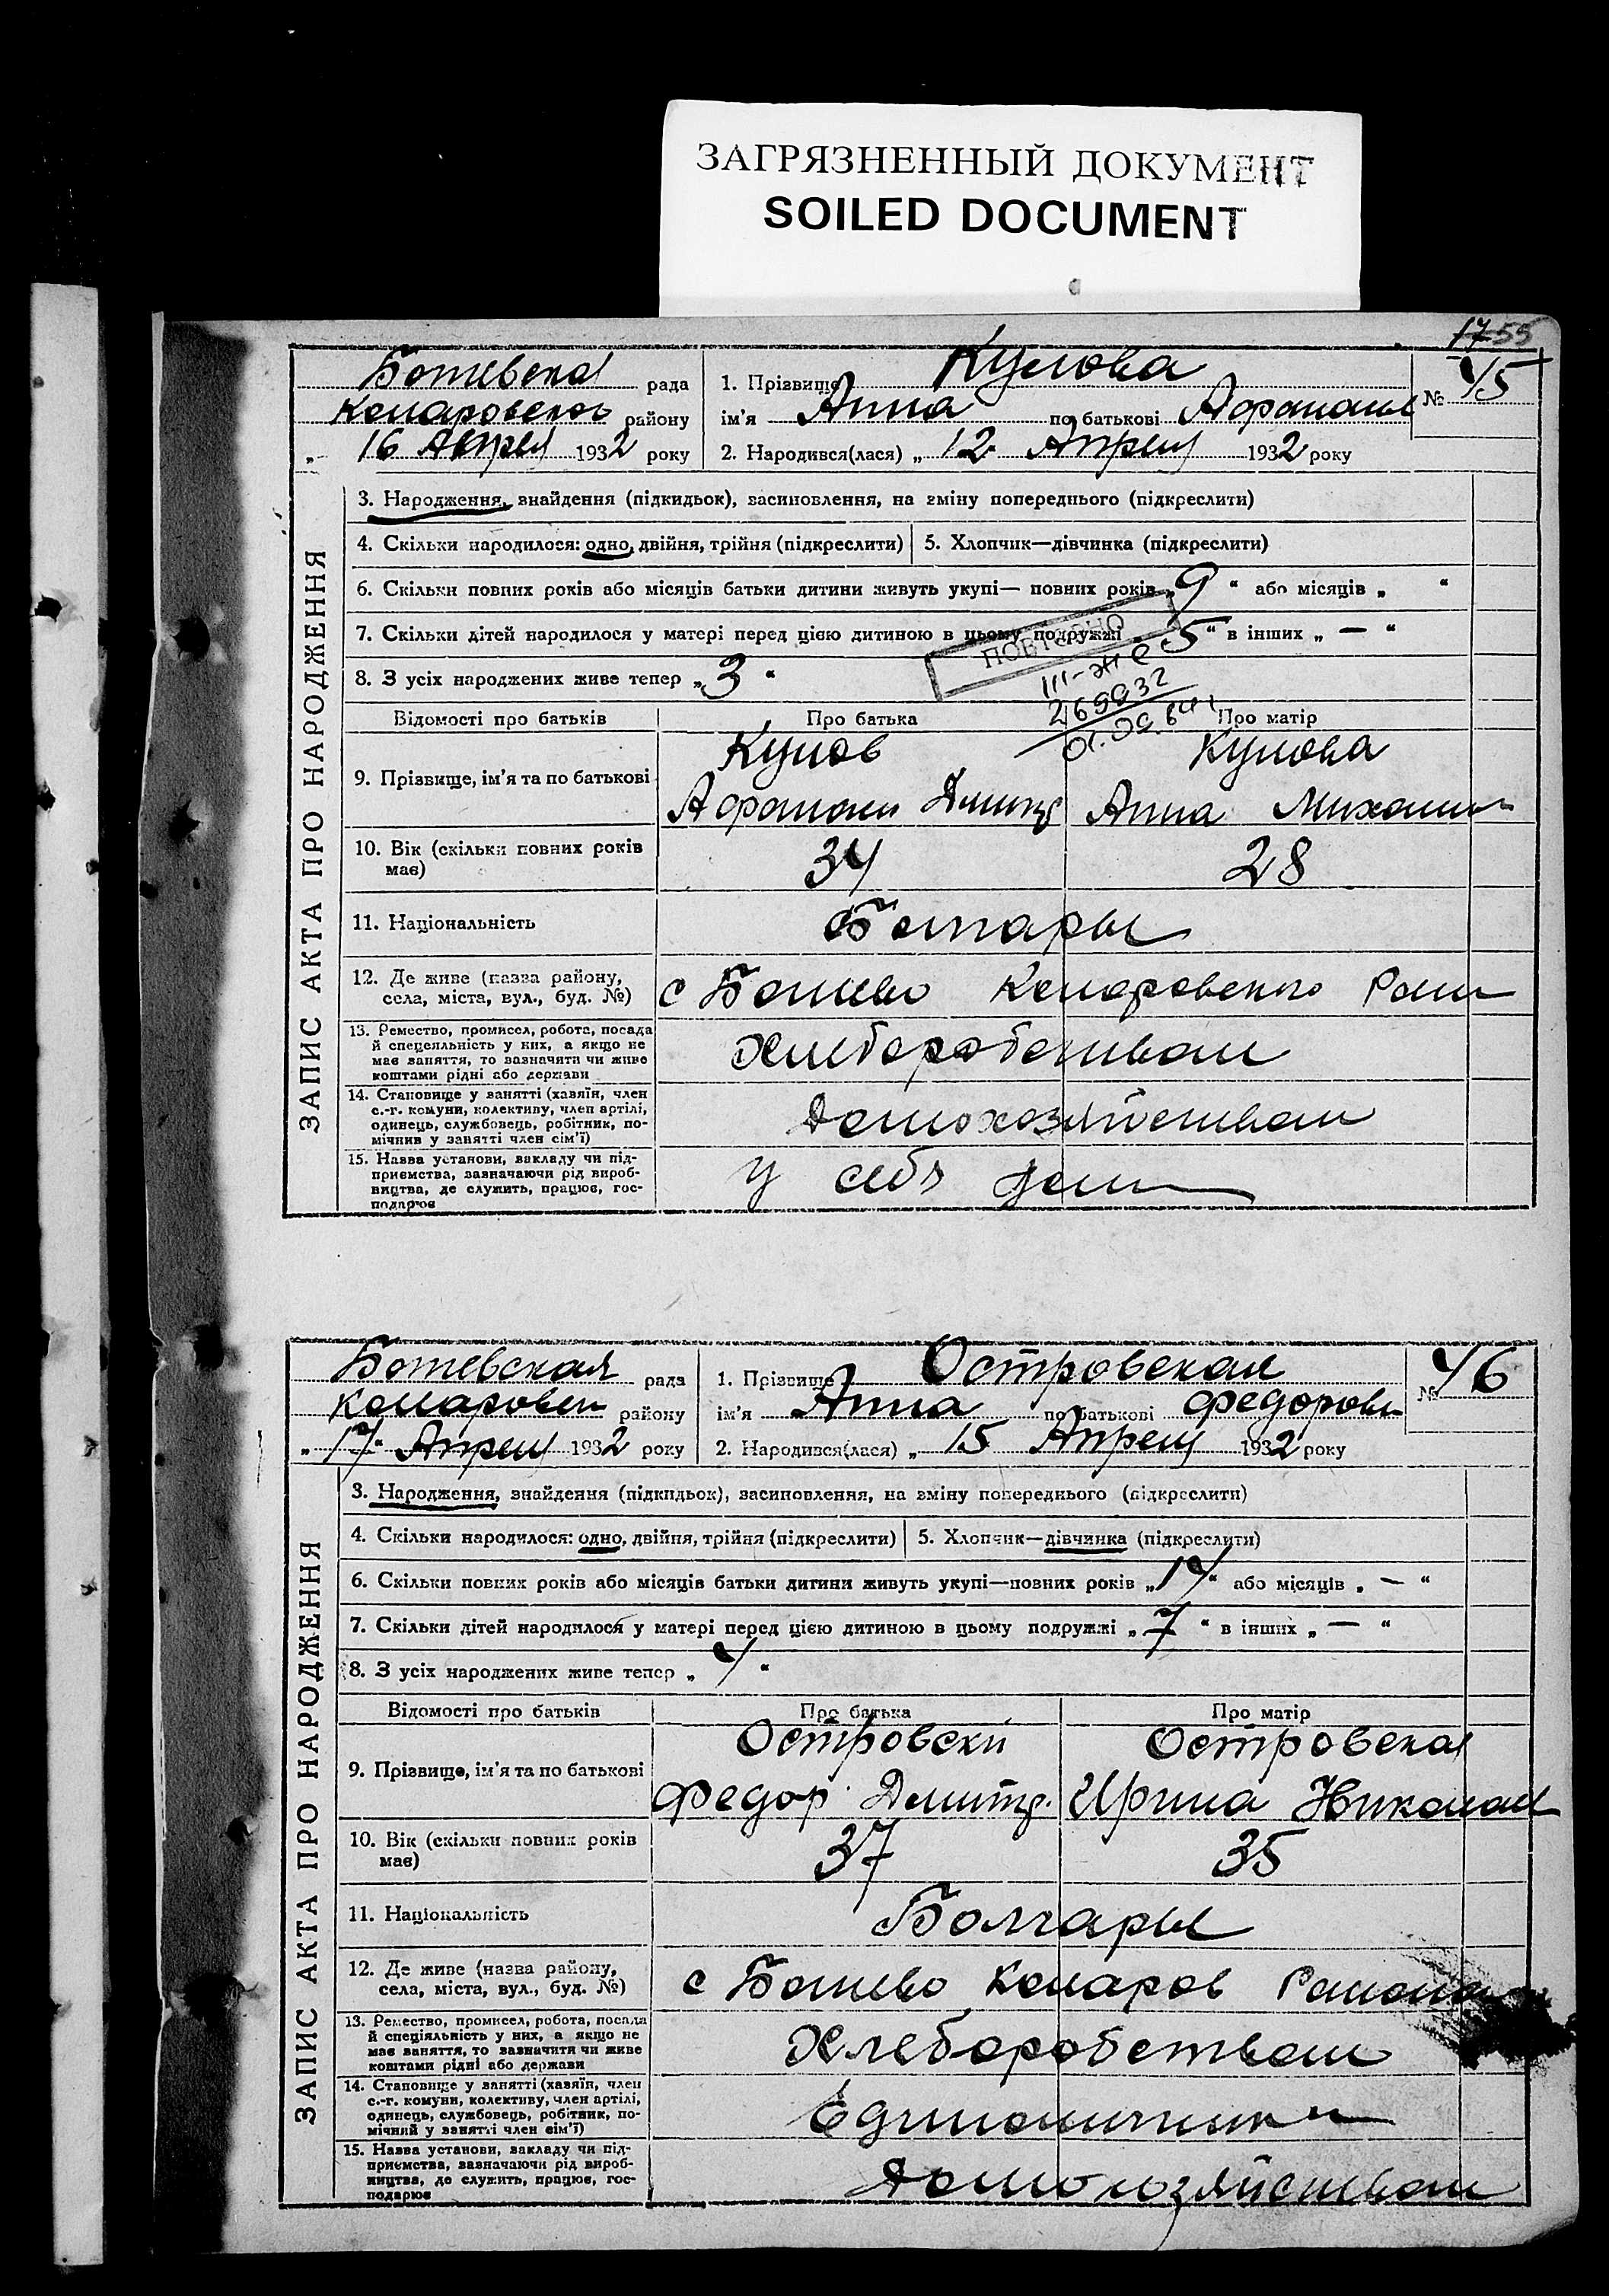 ЗАГРЯЗНЕННЫЙ ДОКУМЕНТ
SOILED DOCUMENT
17 55
ЗАПИС АКТА ПРО НАРОДЖЕННЯ
Ботевска рада
Комаровског району
„ 16 Апреля 1932 року
1. Прізвище Кулова
ім'я Анна по батькові Афанасьев
№ 45
2. Народився(лася) „ 12 Апреля 1932 року
3. Народження, знайдення (підкидьок), засиновлення, на зміну попереднього (підкреслити)
4. Скільки народилося: одно, двійня, трійня (підкреслити) 5. Хлопчик—дівчинка (підкреслити)
6. Скільки повних років або місяців батьки дитини живуть укупі— повних років „ 9 “ або місяців „ “
7. Скільки дітей народилося у матері перед цією дитиною в цьому подружжі „ 5 “ в інших „ — “
8. З усіх народжених живе тепер „ 3 “
ПОВТОРНО
III-ЖС
269932
Відомості про батьків Про батька Про матір
9. Прізвище, ім'я та по батькові
Кулов Кулова
Афанаси Дмитр Анна Михаил
10. Вік (скільки повних років має) 34 28
11. Національність Болгары
12. Де живе (назва району, села, міста, вул., буд. №) с Ботево Комаровского Раи
13. Ремество, промисел, робота, посада
й спеціяльність у них, а якщо не
має заняття, то зазначити чи живе
коштами рідні або держави
Хлеборобством
14. Становище у занятті (хазяїн, член
с.-г. комуни, колективу, член артілі,
одинець, службовець, робітник, по-
мічник у занятті член сім'ї)
Домохозяйством
15. Назва установи, закладу чи під-
приємства, зазначаючи рід вироб-
ництва, де служить, працює, гос-
подарює
У себя дом
ЗАПИС АКТА ПРО НАРОДЖЕННЯ
Ботевская рада
Комаровск району
„ 17 Апреля 1932 року
1. Прізвище Островская
ім'я Анна по батькові Федоровн
№ 46
2. Народився(лася) „ 15 Апреля 1932 року
3. Народження, знайдення (підкидьок), засиновлення, на зміну попереднього (підкреслити)
4. Скільки народилося: одно, двійня, трійня (підкреслити) 5. Хлопчик—дівчинка (підкреслити)
6. Скільки повних років або місяців батьки дитини живуть укупі—повних років „ 17 “ або місяців „ — “
7. Скільки дітей народилося у матері перед цією дитиною в цьому подружжі „ 7 “ в інших „ — “
8. З усіх народжених живе тепер „ 4 “
Відомості про батьків Про батька Про матір
9. Прізвище, ім'я та по батькові
Островски Островская
Федор Дмитр. Ирина Николаев
10. Вік (скільки повних років має) 37 35
11. Національність Болгары
12. Де живе (назва району, села, міста, вул., буд. №) с Ботево Комаров Района
13. Ремество, промисел, робота, посада
й спеціяльність у них, а якщо не
має заняття, то зазначити чи живе
коштами рідні або держави
Хлеборобством
14. Становище у занятті (хазяїн, член
с.-г. комуни, колективу, член артілі,
одинець, службовець, робітник, по-
мічний у занятті член сім'ї)
Единоличник
15. Назва установи, закладу чи під-
приємства, зазначаючи рід вироб-
ництва, де служить, працює, гос-
подарює
Домохозяйством